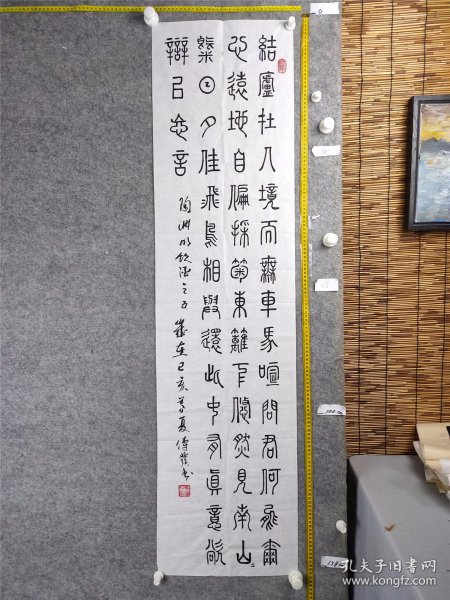 結廬在人境而無車馬喧問君何能爾
心遠地自偏採菊東籬下悠然見南山
氣日夕佳飛鳥相與還此中有眞意欲
辯已忘言
陶渊明饮酒之五 歲在己亥夏
孔夫子旧书网
www.kongfz.com